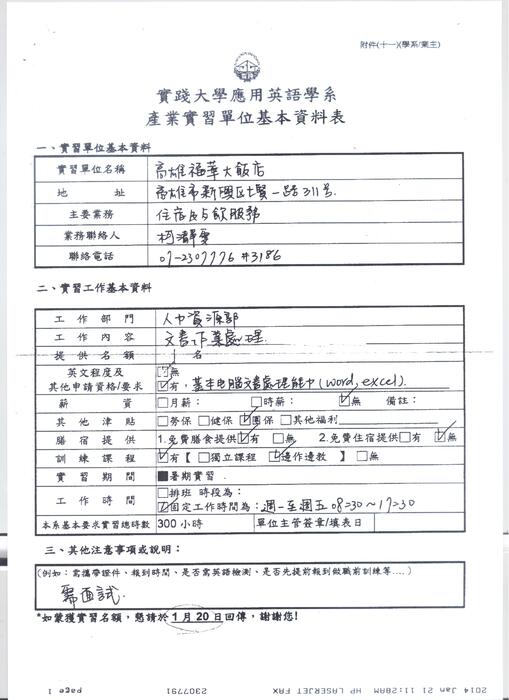 附件(十一)(學系/業主)
實踐大學應用英語學系
產業實習單位基本資料表
一、實習單位基本資料
實習單位名稱 高雄福華大飯店
地 址 高雄市新興區七賢一路311号
主要業務 住宿與飲服務
業務聯絡人
聯絡電話 07-2307776 #3186
二、實習工作基本資料
工作部門 人力資源部
工作內容 文書作業處理.
提供名額 1 名
英文程度及 ☑無
其他申請資格/要求 ☑有, 基本电腦文書處理能力(word, excel).
薪 資 □月薪: □時薪: ☑無 備註:
其他津貼 □勞保 □健保 ☑團保 □其他福利
膳宿提供 1.免費膳食提供☑有 □無 2.免費住宿提供□有 ☑無
訓練課程 ☑有【 □獨立課程 ☑邊作邊教 】 □無
實習期間 ■暑期實習
工作時間 □排班 時段為:
☑固定工作時間為:週一至週五 08:30~17:30
本系基本要求實習總時數 300 小時 單位主管簽章/填表日
三、其他注意事項或說明:
(例如:需攜帶證件、報到時間、是否需英語檢測、是否先提前報到做職前訓練等....)
需面試.
*如蒙獲實習名額,懇請於 1 月 20 日回傳,謝謝您!
2014 Jan 21 11:28AM HP LASERJET FAX 2307791 page 1